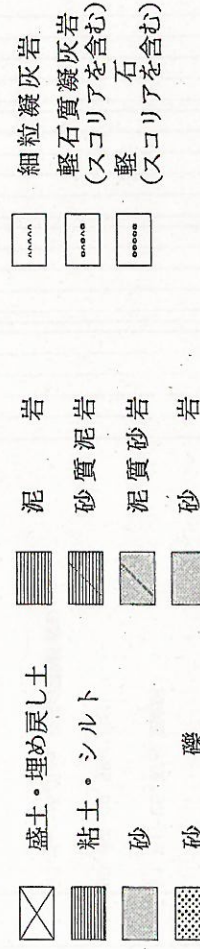 盛土・埋め戻し土
粘土・シルト
砂
砂礫
泥岩
砂質泥岩
泥質砂岩
砂岩
細粒凝灰岩
軽石質凝灰岩
(スコリアを含む)
軽石
(スコリアを含む)